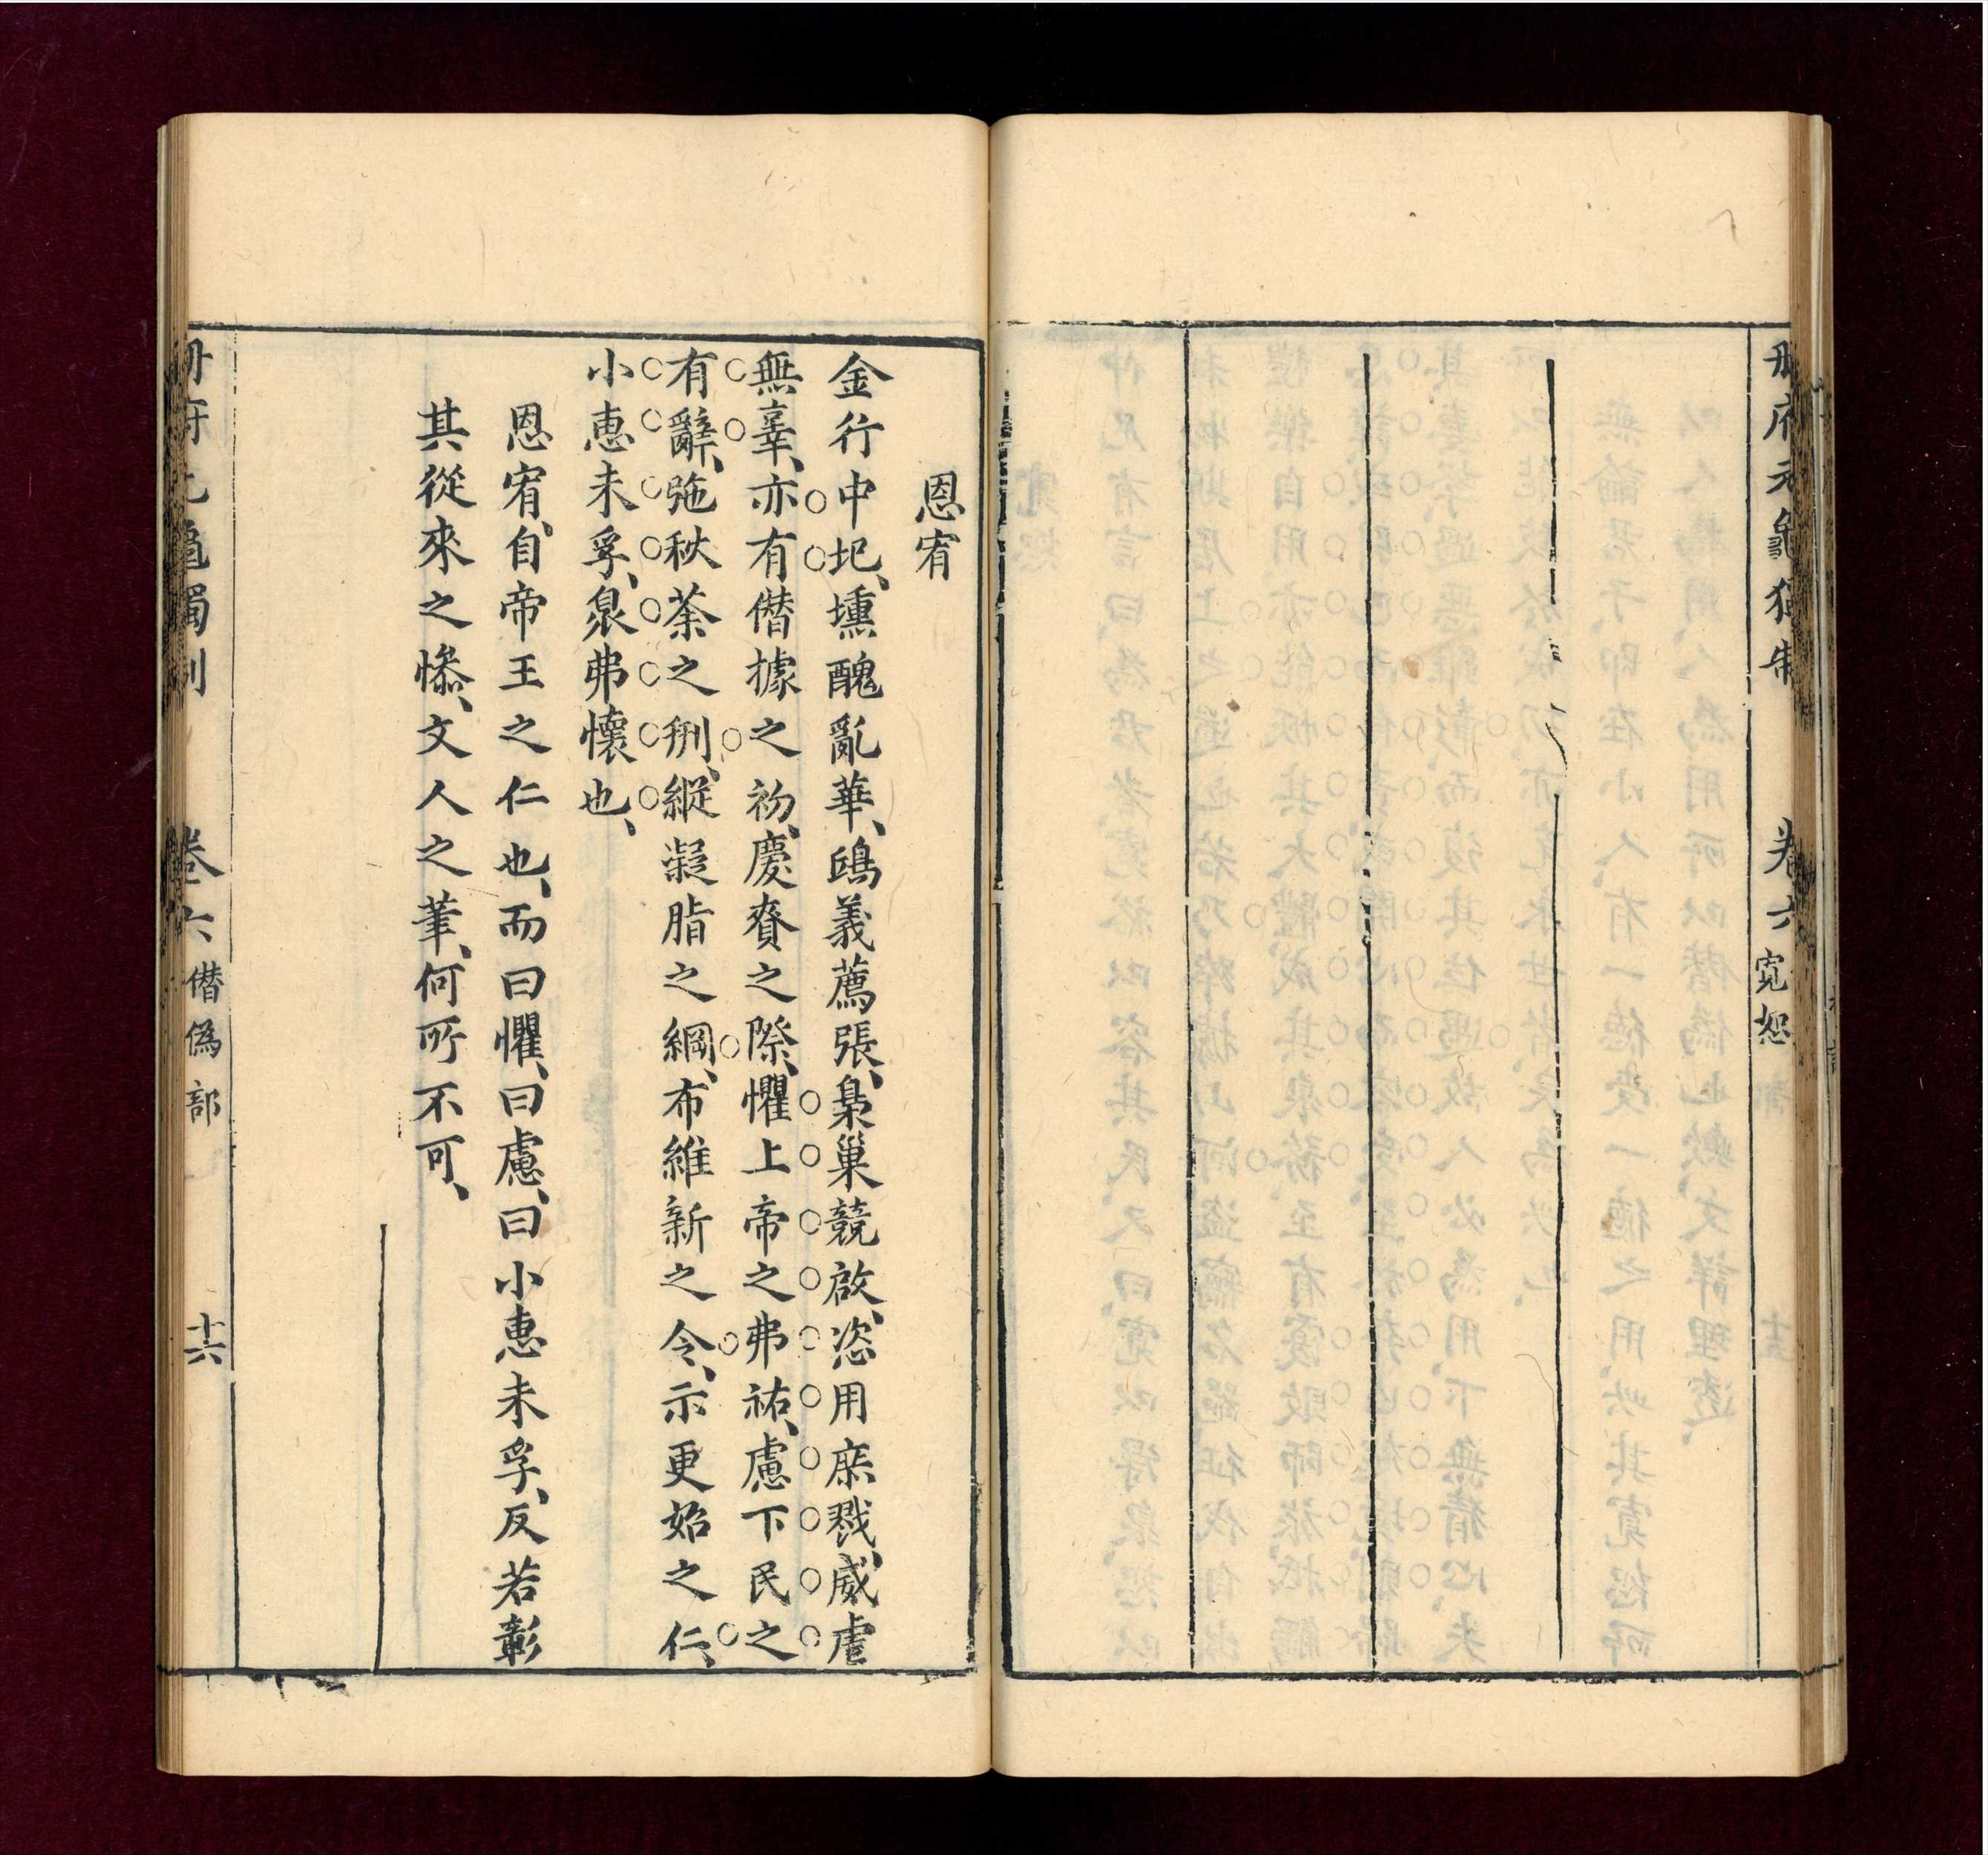 册府元龜獨制 卷六 寬恕
恩宥
金行中圯、壎醜亂華、鴟義薦張、梟巢競啟、恣用庶戮、威虐
無辜、亦有僭據之初、慶賚之際、懼上帝之弗祐、慮下民之
有辭、弛秋荼之𠛬、縱凝脂之綱、布維新之令、示更始之仁、
小惠未孚、衆弗懷也、
恩宥、自帝王之仁也、而曰懼、曰慮、曰小惠未孚、反若彰
其從來之慘、文人之筆、何所不可、
册府元龜獨制 卷六 僭偽部 十六